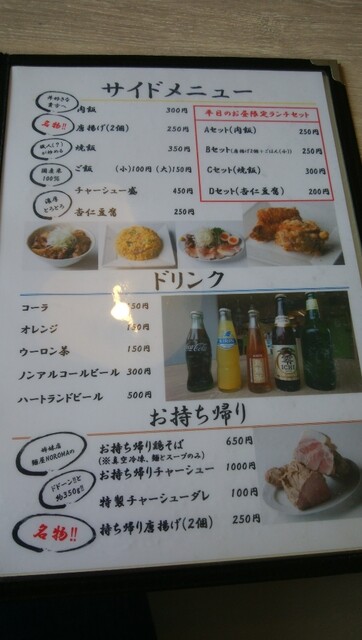 サイドメニュー
肉飯 300円
名物!! 唐揚げ(2個) 250円
焼飯 350円
100% ご飯 (小)100円 (大)150円
チャーシュー盛 450円
濃厚とろとろ 杏仁豆腐 250円
平日のお昼限定ランチセット
Aセット(肉飯) 250円
Bセット(唐揚げ2個+ごはん(小)) 250円
Cセット(焼飯) 300円
Dセット(杏仁豆腐) 200円
ドリンク
コーラ 円
オレンジ 円
ウーロン茶 150円
ノンアルコールビール 300円
ハートランドビール 500円
お持ち帰り
姉妹店
麺屋HOROMAの
お持ち帰り鶏そば 650円
(※真空冷凍、麺とスープのみ)
ドドーンと
約350g!!
お持ち帰りチャーシュー 1000円
特製チャーシューダレ 100円
名物!! 持ち帰り唐揚げ(2個) 250円